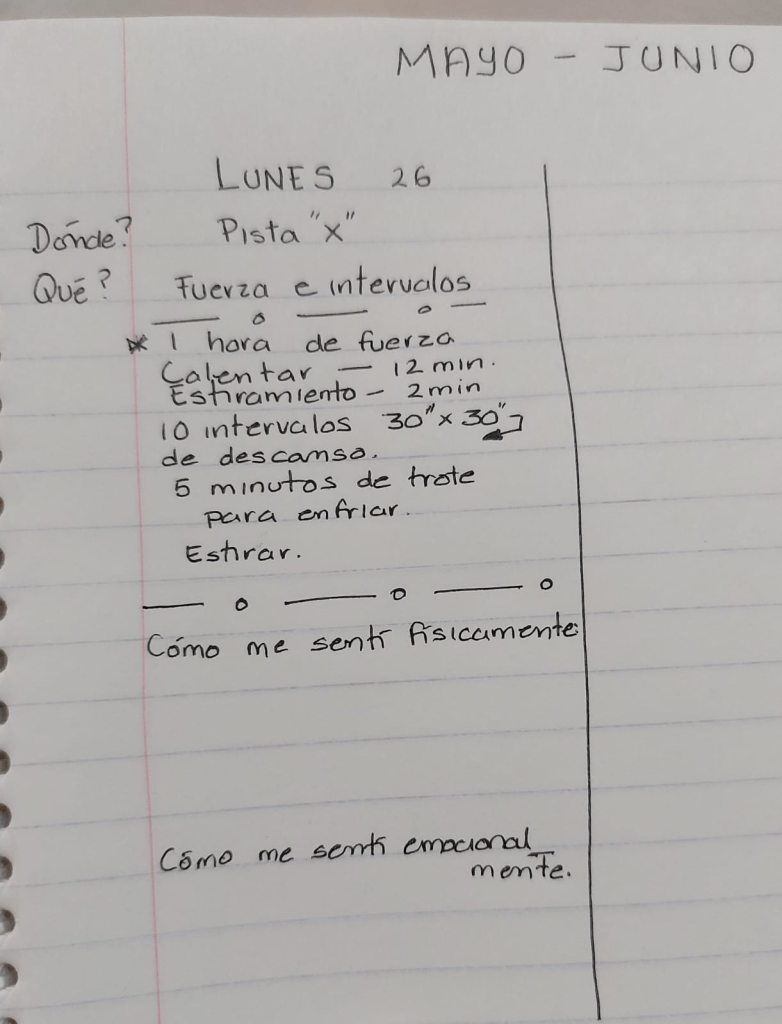 MAYO - JUNIO
LUNES 26
Dónde? Pista "x"
Qué? Fuerza e intervalos
* 1 hora de fuerza
Calentar — 12 min.
Estiramiento - 2 min
10 intervalos 30" x 30"
de descanso.
5 minutos de trote
para enfriar.
Estirar.
Cómo me sentí físicamente:
Cómo me sentí emocional
mente.